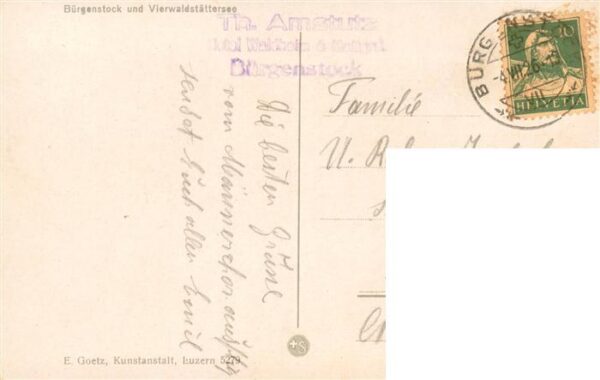 Bürgenstock und Vierwaldstättersee
Th. Amstutz
Hotel Waldheim &
Bürgenstock
BÜRGENSTOCK
-4.VII.26.-15
10
HELVETIA
Familie
U.
Die besten Grüsse
vom Männerchorausflug
sendet Euch allen Emil
+S
E. Goetz, Kunstanstalt, Luzern 5279